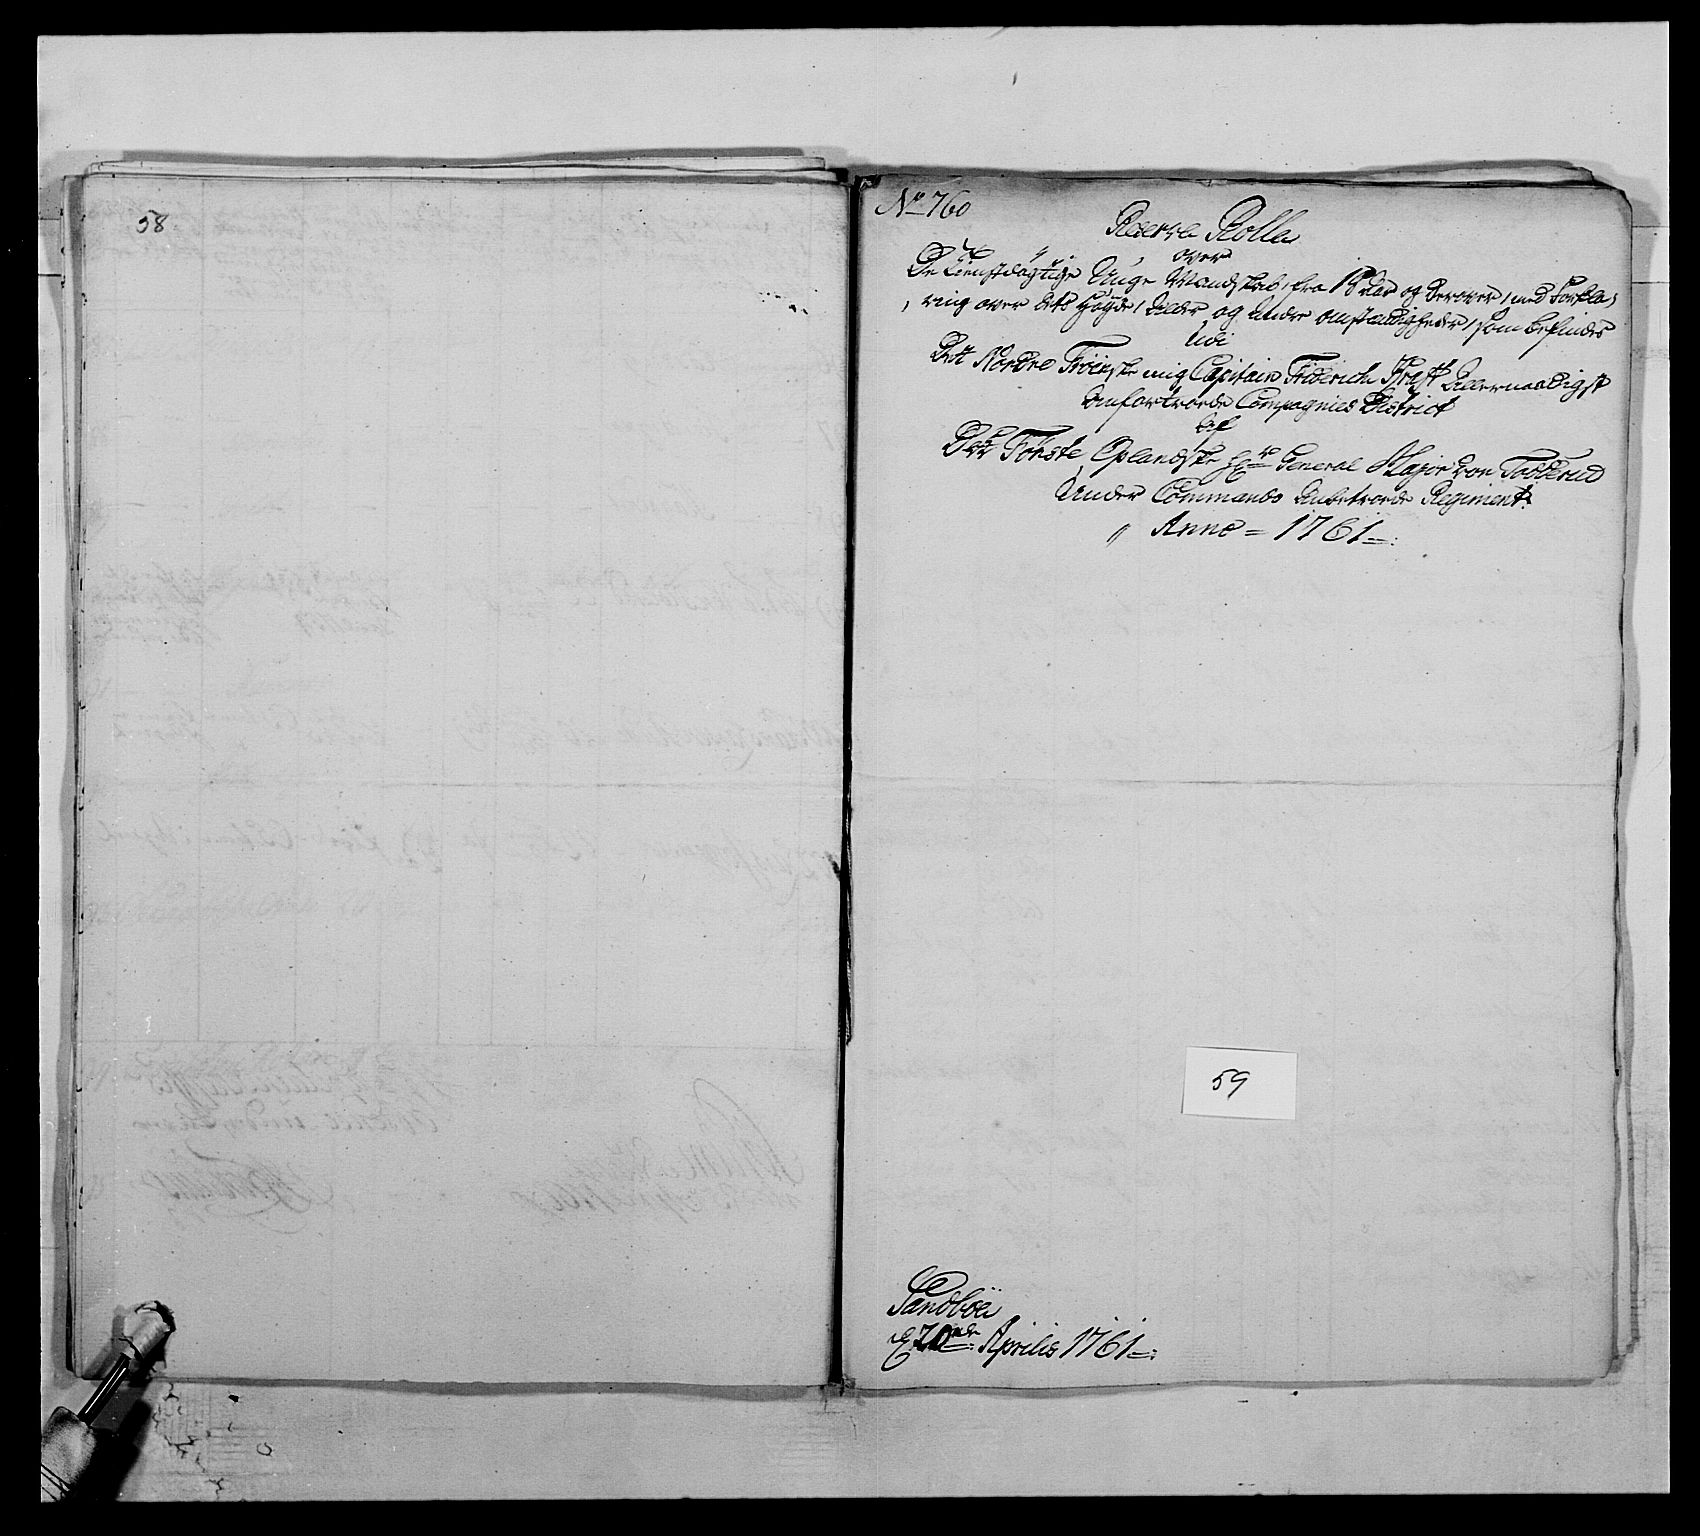 58
No 760
Reserve Rolle
over
De Tienstdögtige Unge Mandskab, fra 18 Aar og derover, med Forkla,
, ring over dets Høyde, Alder og Andre omstændigheder, som befindes
Udi
Dett Nordre Frönske mig Capitain Friderich Kraft Allernaadigst
Anfortroede Compagnies District
Af
Dett Förste Oplandske Hr General Major von Todderud
Under Commando Anbetroede Regiment.
" Anno = 1761 =:
59
Sandböe
d 20de Aprilis 1761 =: